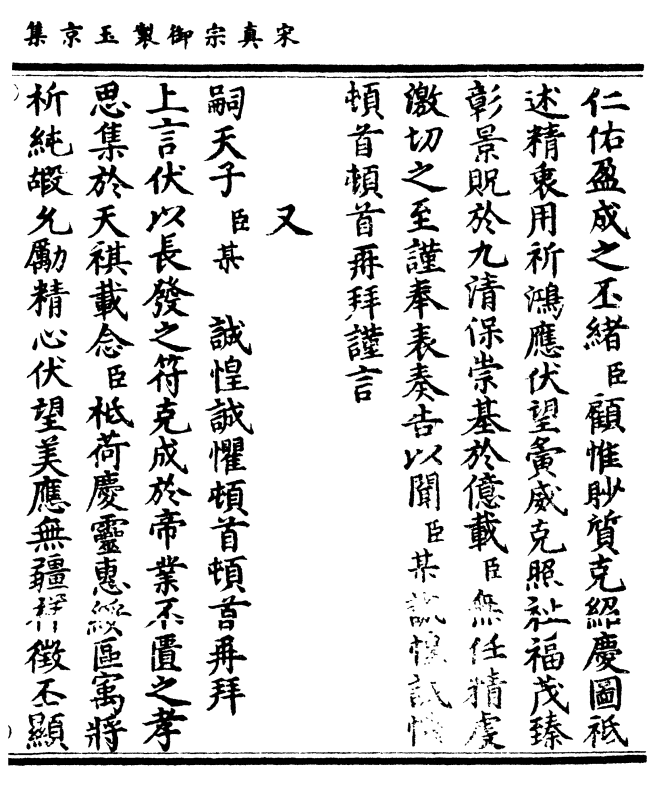 宋真宗御製玉京集
仁佑盈成之丕緒臣顧惟眇質克紹慶圖祗
述精衷用祈鴻應伏望夤威克照祉福茂臻
彰景貺於九清保崇基於億載臣無任精虔
激切之至謹奉表奏告以聞臣某誠惶誠懼
頓首頓首再拜謹言
又
嗣天子臣某 誠惶誠懼頓首頓首再拜
上言伏以長發之符克成於帝業不匱之孝
思集於天祺載念臣祗荷慶靈惠綏區寓將
祈純嘏允勵精心伏望美應無疆祥徵丕顯